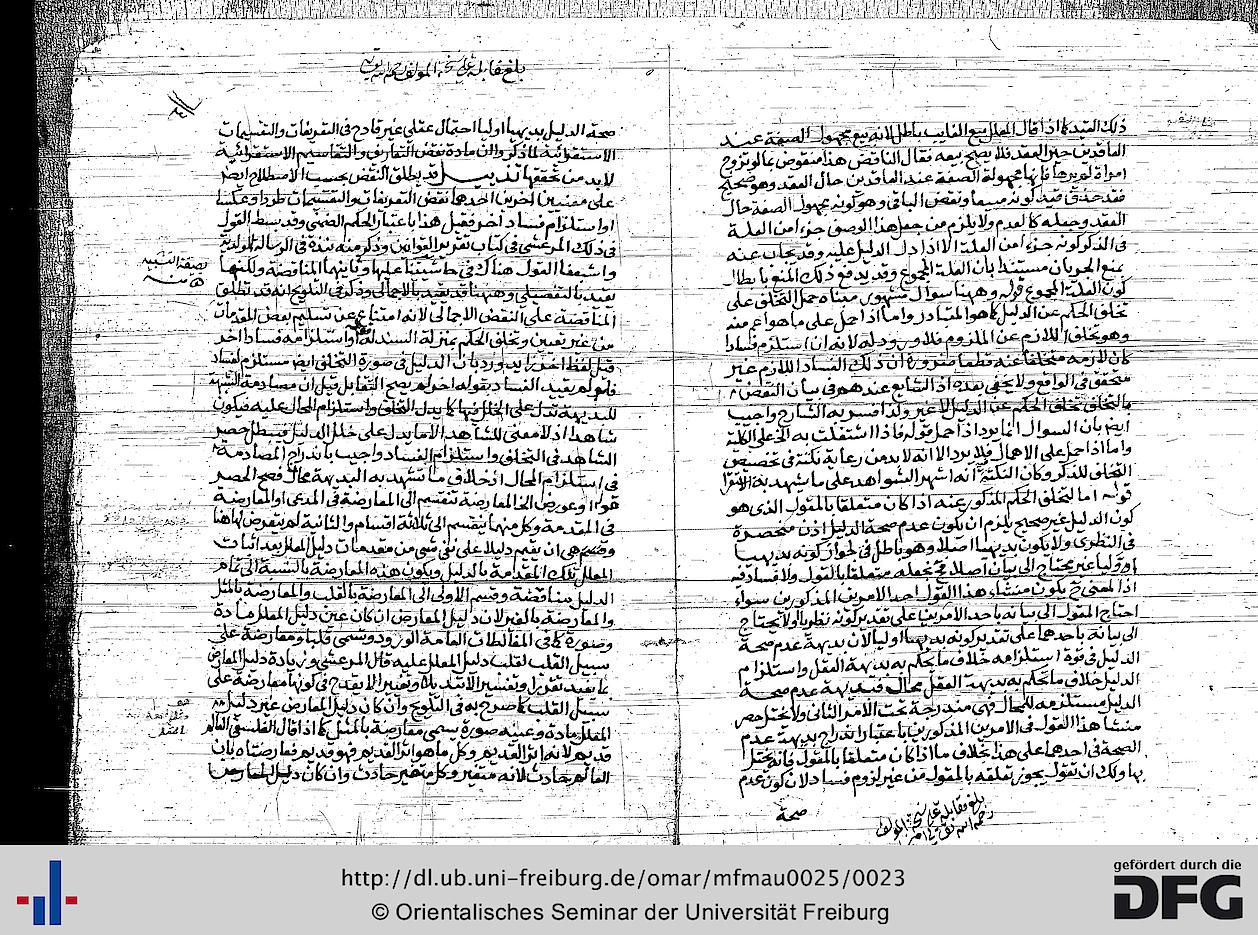 ذلك القيد كما اذا قال المعلل بيع الغايب باطل لانه بيع مجهول الصفة عند
العاقدين حين العقد فلا يصح بيعه فقال الناقض هذا منقوض بما لو تزوج
امراة لم يرها فانها مجهولة الصفة عند العاقدين حال العقد وهو صحيح
فقد حذف قيد كونه مبيعا ونقض الباقي وهو كونه مجهول الصفة حال
العقد وجعله كالعدم ولا يلزم من جعل هذا الوصف جزء من العلة
في الذكر كونه جزء من العلة الا اذا دل الدليل عليه وقد يجاب عنه
بمنع الجريان مستندا بان العلة المجموع وقد يدفع ذلك المنع بابطال
كون العلة المجموع قوله وههنا سوال مشهور مبناه حمل التخلف على
تخلف الحكم عن الدليل كما هو المتبادر واما اذا حمل على ما هو اعم منه
وهو تخلف اللازم عن الملزوم فلا ورود له لانه ان استلزم فسادا
كان لازمه متخلفا عنه قطعا ضرورة ان ذلك الفساد اللازم غير
متحقق في الواقع ولا يخفى بعده اذ الشايع عندهم في بيان النقض
بالتخلف تخلف الحكم عن الدليل لا غير ولذا فسر به الشارح واجيب
ايضا بان السوال انما يرد اذا حمل قوله فاذا اشتغلت به الخ على الكلية
واما اذا حمل على الاهمال فلا يرد الا انه لا بد من رعاية نكتة في تخصيص
التخلف للذكر وكان النكتة انه اشهر الشواهد على ما شهد به
قوله اما لتخلف الحكم المذكور عنه اذا كان متعلقا بالمقول الذي هو
كون الدليل غير صحيح يلزم ان يكون عدم صحة الدليل اذن منحصرة
في النظري ولا يكون بديهيا اصلا وهو باطل في لجواز كونه بديهيا
اوليا غير محتاج الى بيان اصلا فجعله متعلقا بالقول ولا فساد فيه
اذ المعنى ح يكون منشاء هذا القول احد الامرين المذكورين سواء
احتاج المقول الى بيانه باحد الامرين على تقدير كونه نظريا اولا يحتاج
الى بيانه باحدهما على تقدير كونه بديهيا اوليا لان بديهة عدم صحة
الدليل في قوة استلزامه خلاف ما يحكم به بديهة العقل واستلزام
الدليل خلاف ما يحكم به بديهة العقل محال فبديهة عدم صحة
الدليل مستلزمه للمحال فهي مندرجة تحت الامر الثاني ولا يختل حصر
منشا هذا القول في الامرين المذكورين باعتبار اندراج بديهة عدم
الصحة في احدهما على هذا بخلاف ما اذا كان متعلقا بالمقول فانه يختل
بها ولك ان تقول يجوز تعلقه بالمقول من غير لزوم فساد لان كون عدم
صحة
بلغ مقابلة على نسخة المولف
رحمه الله
بلغ مقابلة على نسخة المولف
صحة الدليل بديهيا اوليا احتمال عقلي غير قادح في التعريفات والتقسيمات
الاستقرائية لما ذكر وان مادة نقض التعاريف والتقاسيم الاستقرائية
لا بد من تحققها تذييل قد يطلق النقض بحسب الاصطلاح ايضا
على معنيين اخرين احدهما نقض التعريفات والتقسيمات طردا وعكسا
او استلزام فساد اخر فقيل هذا باعتبار الحكم الضمني وقد بسط القول
في ذلك المرعشي في كتاب تقرير القوانين وذكر منه نبذة في الرسالة الولدية
واشبعنا القول هناك في حاشيتنا عليها وثانيهما المناقضة ولكنها
تقيد بالتفصيلي وههنا قد يقيد بالاجمال وذكر في التلويح انه قد تطلق
المناقضة على النقض الاجمالي لانه امتناع عن تسليم بعض المقدمات
من غير تعيين وتخلف الحكم بمنزلة السند له او استلزامه فسادا اخر
قيل لفظ اخر زايد ورد بان الدليل في صورة التخلف ايضا مستلزم لفساد
فلو لم يقيد الفساد بقوله اخر لم يصح التقابل قيل ان مصادمة الشبهة
للبديهة تدل على الخلل فيها كما يدل التخلف واستلزام المحال عليه فيكون
شاهدا اذ لا معنى للشاهد الا ما يدل على خلل الدليل فيبطل حصر
الشاهد في التخلف واستلزام الفساد واجيب باندراج المصادمة
في استلزام المحال اذ خلاف ما تشهد به البديهة محال فصح الحصر
قوله او عورض الخ المعارضة تنقسم الى المعارضة في المدعى او المعارضة
في المقدمة وكل منهما ينقسم الى ثلاثة اقسام والثانية لم يتعرض لها هنا
وهي ان يقيم دليلا على نفي شي من مقدمات دليل المعلل بعد اثبات
المعلل تلك المقدمة بالدليل ويكون هذه المعارضة بالنسبة الى تمام
الدليل مناقضة وقسم الاولى الى المعارضة بالقلب والمعارضة بالمثل
والمعارضة بالغير لان دليل المعارض ان كان عين دليل المعلل مادة
وصورة كما في المغالطات العامة الورود ويسمى قلبا ومعارضة على
سبيل القلب لقلب دليل المعلل عليه قال المرعشي وزيادة دليل المعارض
ما يفيد تقريرا وتفسيرا لا تبديلا وتغييرا لا يقدح في كونها معارضة على
سبيل القلب كما صرح به في التلويح وان كان دليل المعارض غير دليل
المعلل مادة وعينه صورة يسمى معارضة بالمثل كما اذا قال الفلسفي العالم
قديم لانه اثر القديم وكل ما هو اثر القديم فهو قديم فعارضناه بان
العالم حادث لانه متغير وكل متغير حادث وان كان دليل المعارض
http://dl.ub.uni-freiburg.de/omar/mfmau0025/0023
© Orientalisches Seminar der Universität Freiburg
gefördert durch die
DFG